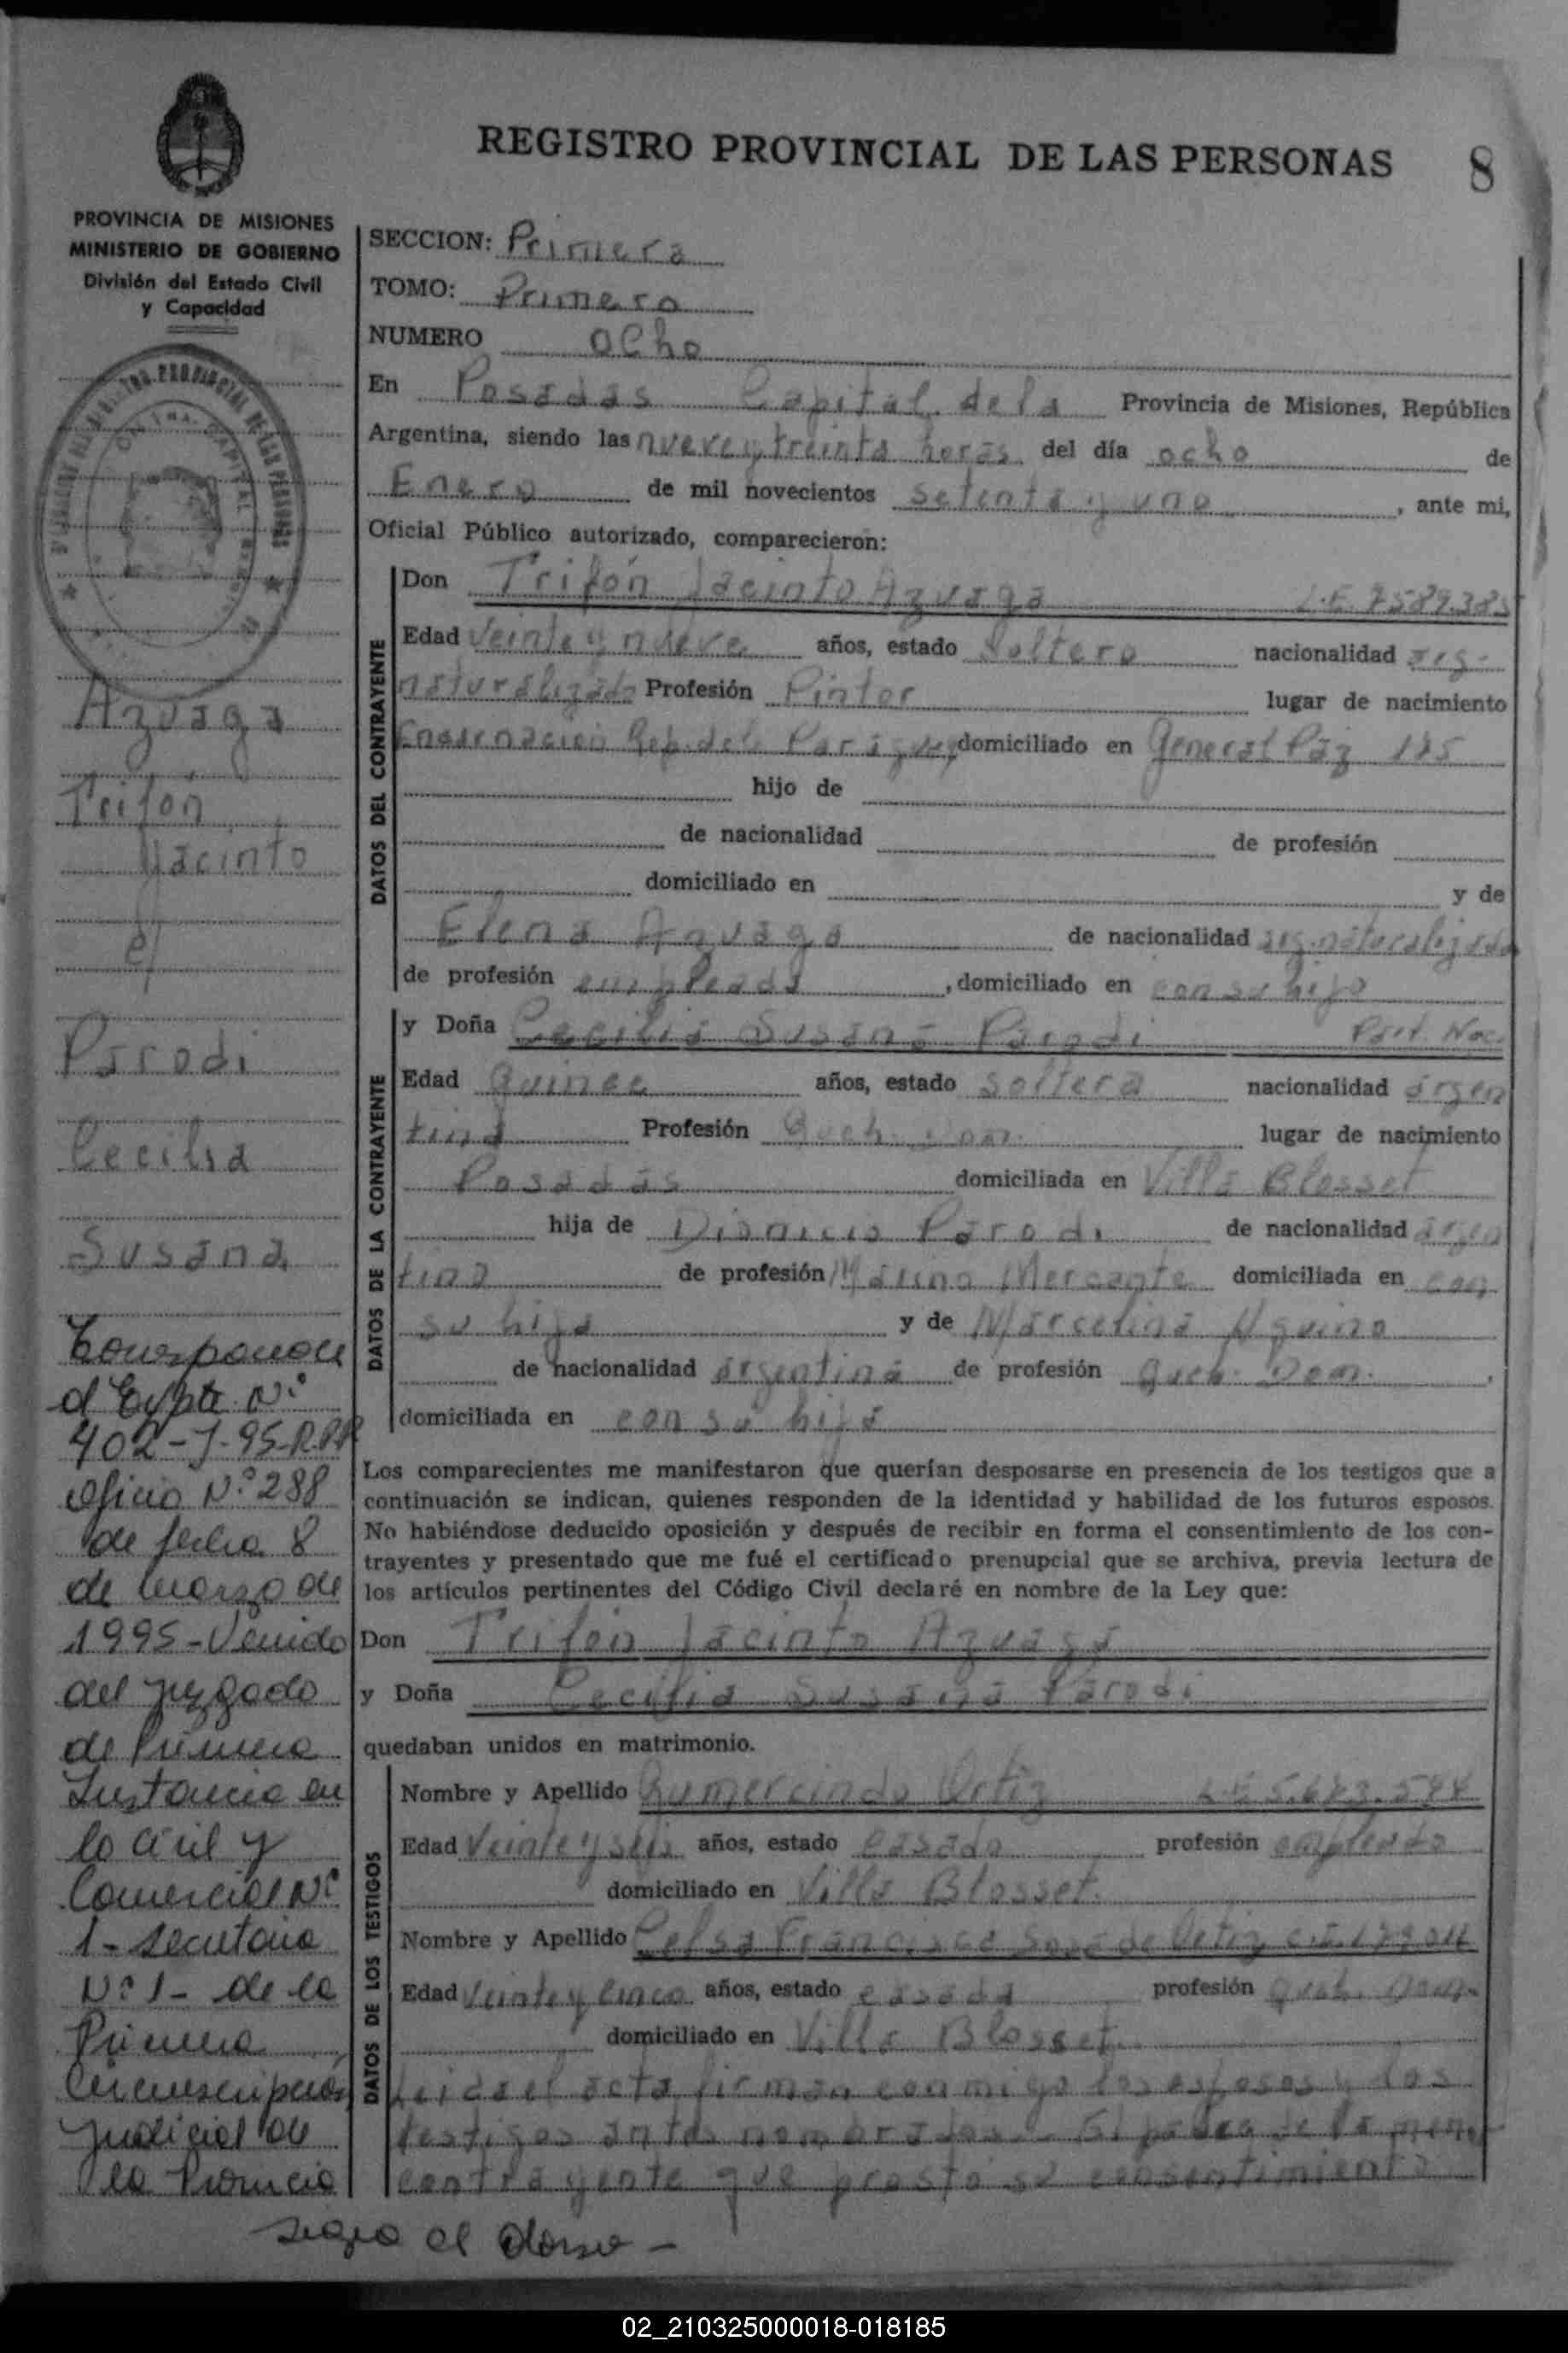 REGISTRO PROVINCIAL DE LAS PERSONAS
8
PROVINCIA DE MISIONES
MINISTERIO DE GOBIERNO
División del Estado Civil
y Capacidad
SECCION: Primera
TOMO: Primero
NUMERO ocho
En Posadas Capital de la Provincia de Misiones, República
Argentina, siendo las nueve y treinta horas del día ocho de
Enero de mil novecientos setenta y uno, ante mi,
Oficial Público autorizado, comparecieron:
DATOS DEL CONTRAYENTE
Don Trifón Jacinto Azuaga L.E. 7589.385
Edad veinte y nueve años, estado Soltero nacionalidad arg.
naturalizado Profesión Pintor lugar de nacimiento
Encarnación Rep. del Paraguay domiciliado en General Paz 185
hijo de
de nacionalidad de profesión
domiciliado en y de
Elena Azuaga de nacionalidad arg. naturalizada
de profesión empleada, domiciliado en con su hijo
DATOS DE LA CONTRAYENTE
y Doña Cecilia Susana Parodi Part. Nac.
Edad Quince años, estado soltera nacionalidad argen
tina Profesión Queh. Dom. lugar de nacimiento
Posadas domiciliada en Villa Blosset
hija de Dionicio Parodi de nacionalidad argen
tina de profesión Marino Mercante domiciliada en con
su hija y de Marcelina Aquino
de nacionalidad argentina de profesión Queh. Dom.,
domiciliada en con su hija
Los comparecientes me manifestaron que querían desposarse en presencia de los testigos que a
continuación se indican, quienes responden de la identidad y habilidad de los futuros esposos.
No habiéndose deducido oposición y después de recibir en forma el consentimiento de los con-
trayentes y presentado que me fué el certificado prenupcial que se archiva, previa lectura de
los artículos pertinentes del Código Civil declaré en nombre de la Ley que:
Don Trifón Jacinto Azuaga
y Doña Cecilia Susana Parodi
quedaban unidos en matrimonio.
DATOS DE LOS TESTIGOS
Nombre y Apellido Gumercindo Ortiz L.E
Edad Veinte y seis años, estado casado profesión empleado
domiciliado en Villa Blosset.
Nombre y Apellido Celsa Francisca Sosa de Ortiz
Edad Veinte y cinco años, estado casada profesión Queh. Dom.
domiciliado en Villa Blosset.
Leida el acta firman conmigo los esposos y los
testigos antes nombrados. El padre de la menor
contrayente que prestó su consentimiento
Azuaga
Trifon
Jacinto
c/
Parodi
Cecilia
Susana
Corresponde
al Expte. Nº
402-J-95-R.P.P
Oficio Nº 288
de fecha 8
de Marzo de
1995 - Venido
del Juzgado
de Primera
Instancia en
lo Civil y
Comercial Nº
1 - Secretaria
Nº 1 - de la
Primera
Circunscripcion
Judicial de
la Provincia
sigue al dorso -
02_210325000018-018185